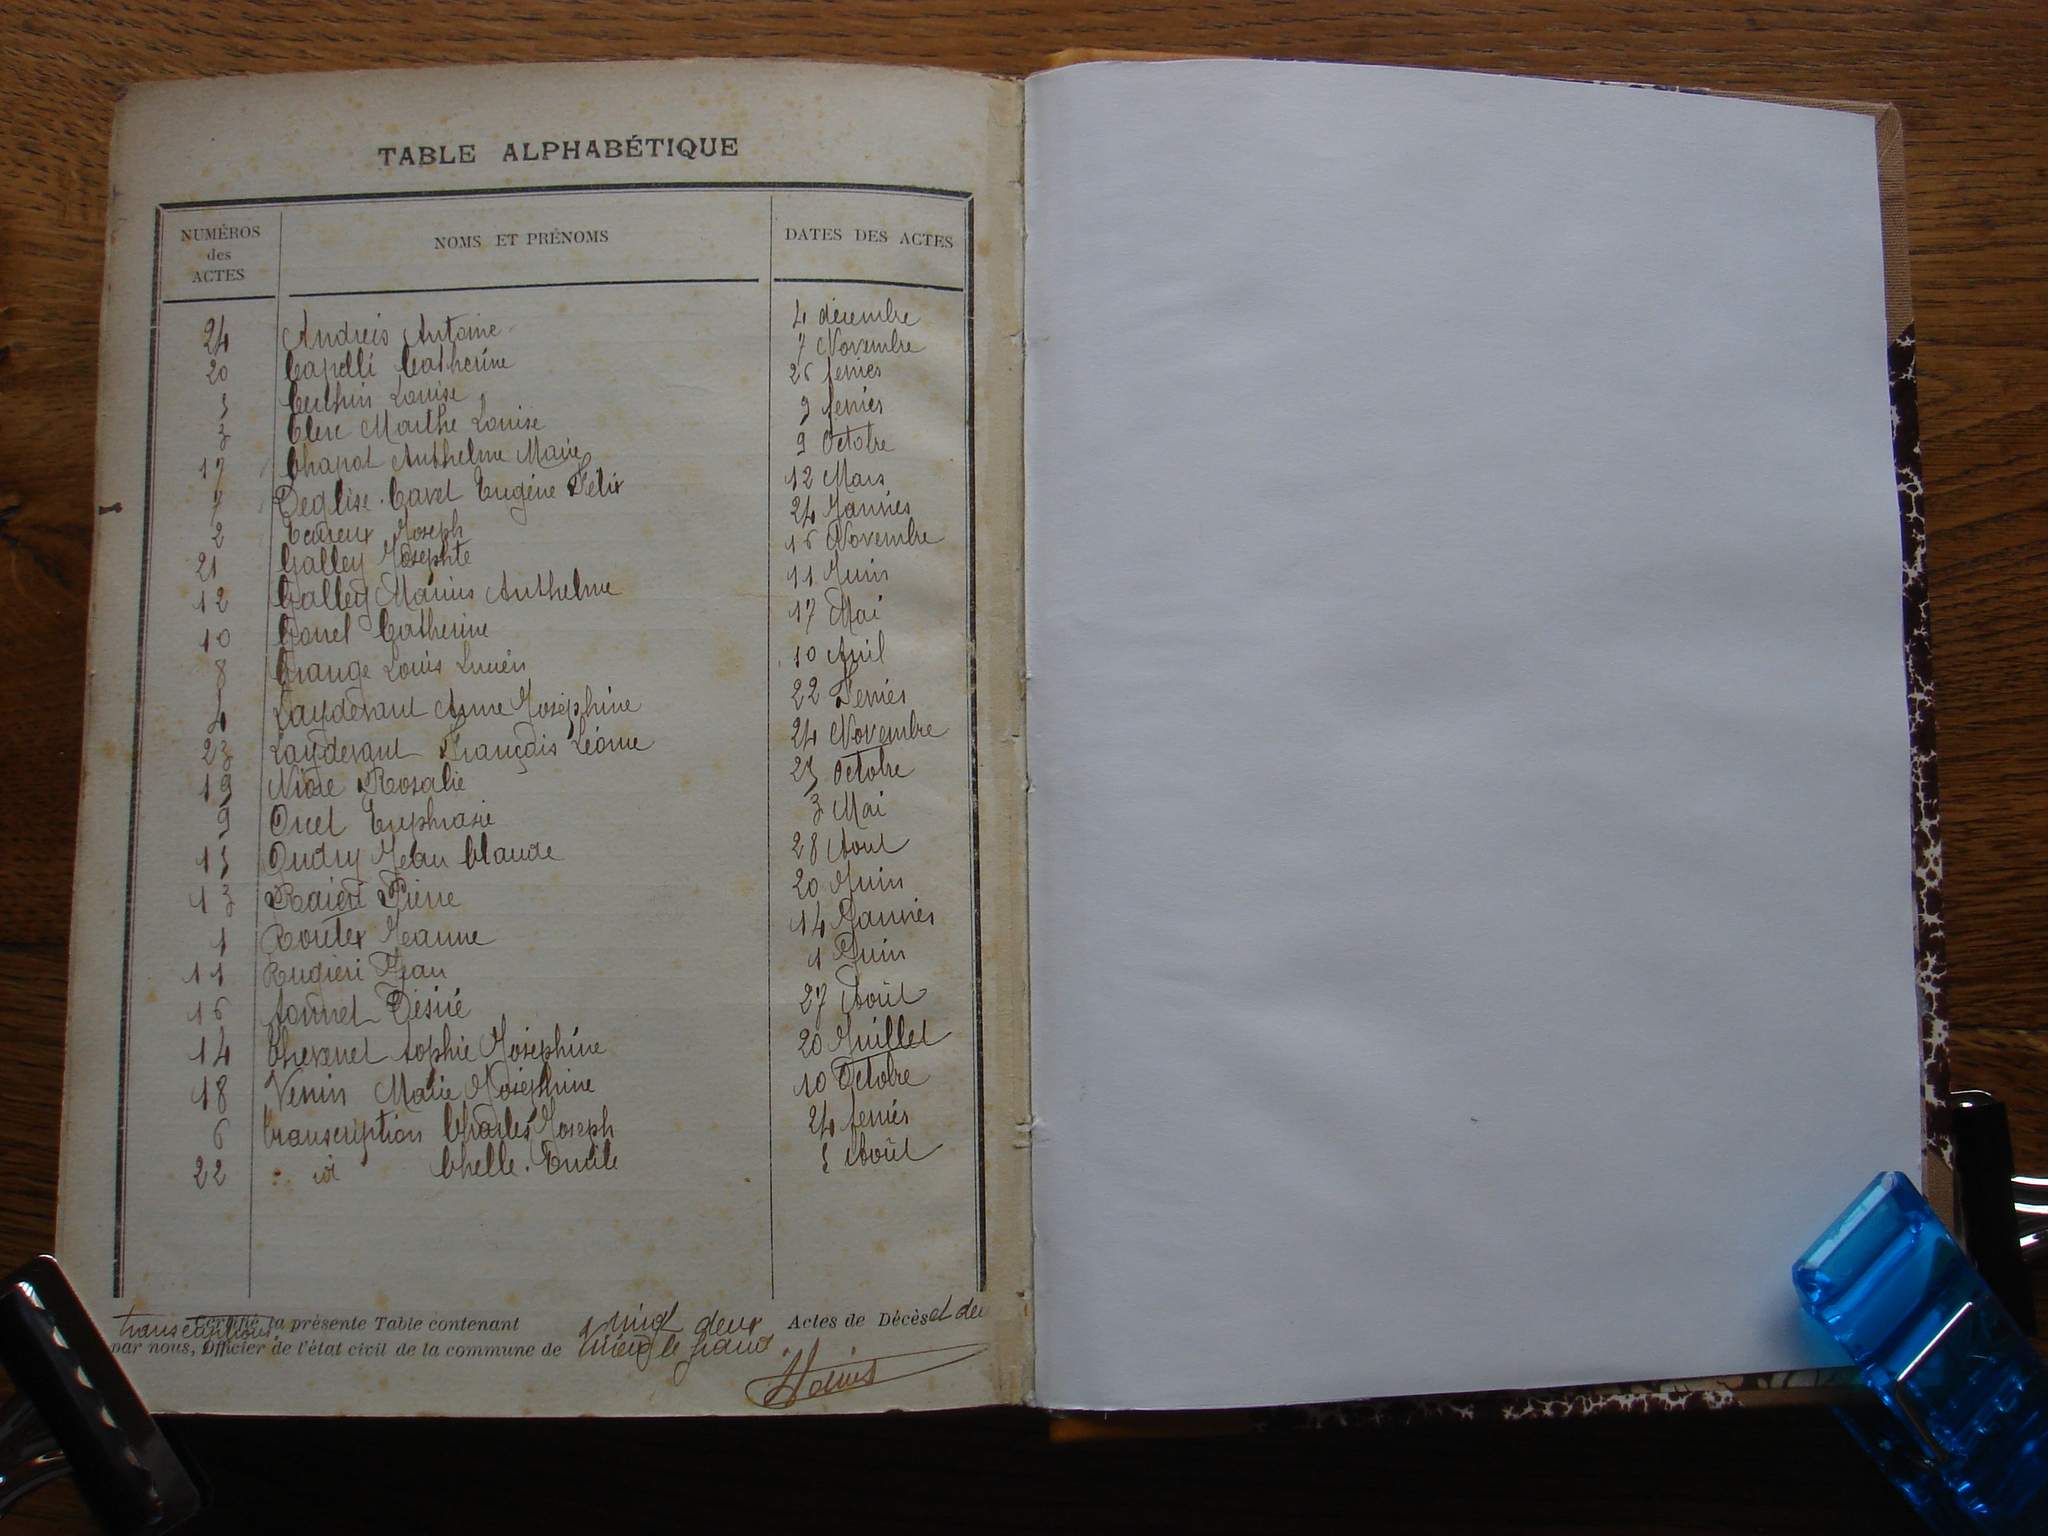 TABLE ALPHABÉTIQUE
NUMÉROS des ACTES NOMS ET PRÉNOMS DATES DES ACTES
24 Andreis Antoine 4 décembre
20 Capelli Catherine 7 Novembre
5 Louise 26 fevrier
3 Clerc Marthe Louise 9 fevrier
17 Chapot Anthelme Marie 9 Octobre
7 Deglise-Cavet Eugène Félix 12 Mars
2 Joseph 24 Janvier
21 Galley Josephte 16 Novembre
12 Galley Marius Anthelme 11 Juin
10 Gonel Catherine 17 Mai
8 Grange Louis Lucien 10 Avril
4 Laydevant Anne Joséphine 22 Fevrier
23 Laydevant François Léonce 24 Novembre
19 Rosalie 25 Octobre
9 Orcel Euphrasie 3 Mai
15 Oudry Jean Claude 28 Aout
13 Pierre 20 Juin
1 Routex Jeanne 14 Janvier
11 Rugieri Jean 1 Juin
16 Sonnet Désiré 27 Août
14 Thevenet Sophie Joséphine 20 Juillet
18 Venin Marie Joséphine 10 Octobre
6 transcription Charles Joseph 24 fevrier
22 - id Chelle Emile 5 Août
Certifié la présente Table contenant vingt deux Actes de Décès et deux
transcriptions
par nous, Officier de l'état civil de la commune de